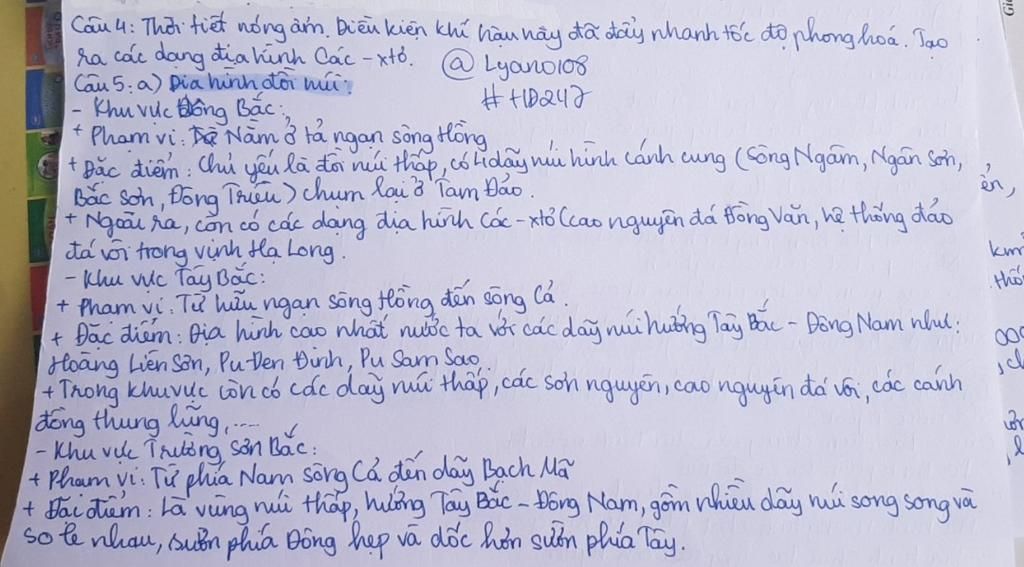 Câu 4: Thời tiết nóng ẩm. Điều kiện khí hậu này đã đẩy nhanh tốc độ phong hoá. Tạo
ra các dạng địa hình Các-xtơ.
@Lyano108
#HD247
Câu 5: a) Địa hình đồi núi:
- Khu vực Đông Bắc:
+ Phạm vi: Nằm ở tả ngạn sông Hồng
+ Đặc điểm: Chủ yếu là đồi núi thấp, có 4 dãy núi hình cánh cung (Sông Ngâm, Ngân Sơn,
Bắc Sơn, Đông Triều) chụm lại ở Tam Đảo.
+ Ngoài ra, còn có các dạng địa hình Các-xtơ (cao nguyên đá Đồng Văn, hệ thống đảo
đá vôi trong vịnh Hạ Long.
- Khu vực Tây Bắc:
+ Phạm vi: Từ hữu ngạn sông Hồng đến sông Cả.
+ Đặc điểm: Địa hình cao nhất nước ta với các dãy núi hướng Tây Bắc - Đông Nam như:
Hoàng Liên Sơn, Pu Đen Đinh, Pu Sam Sao
+ Trong khu vực còn có các dãy núi thấp, các sơn nguyên, cao nguyên đá vôi, các cánh
đồng thung lũng, ....
- Khu vực Trường Sơn Bắc:
+ Phạm vi: Từ phía Nam sông Cả đến dãy Bạch Mã
+ Đặi điểm: Là vùng núi thấp, hướng Tây Bắc - Đông Nam, gồm nhiều dãy núi song song và
so le nhau, sườn phía Đông hẹp và dốc hơn sườn phía Tây.